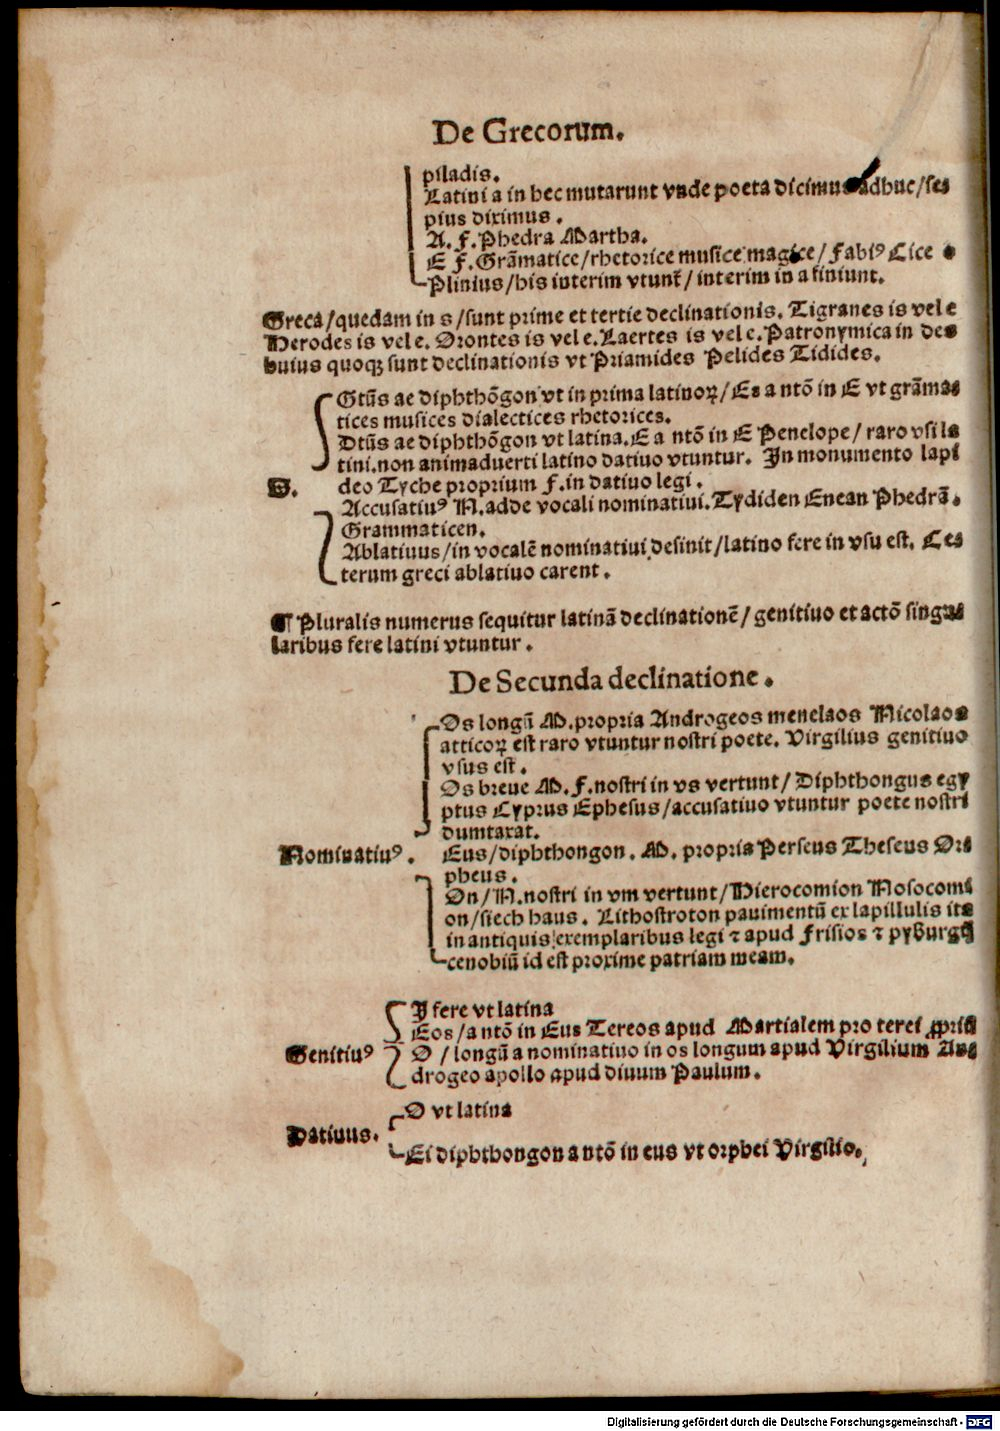 De Grecorum.
piladis.
Latini a in hec mutarunt vnde poeta dicimus adhuc/ se⸗
pius diximus .
A. F. Phedra Martha.
E F. Grãmatice/rhetorice musice magice / Fabiꝰ Cice
Plinius/his interim vtunt᷑/ interim in a finiunt.
Greca/quedam in s/sunt prime et tertie declinationis. Tigranes is vel e
Herodes is vel e. Orontes is vel e. Laertes is vel e. Patronymica in des
huius quoqꝫ sunt declinationis vt Priamides Pelides Tidides.
Gtũs ae diphthõgon vt in prima latinoꝝ/ Es a ntõ in E vt grãma⸗
tices musices dialectices rhetorices.
Dtũs ae diphthõgon vt latina. E a ntõ in E Penelope/ raro vsi la
tini. non animaduerti latino datiuo vtuntur. In monumento lapi
S. deo Tyche proprium F. in datiuo legi .
Accusatiuꝰ N. adde vocali nominatiui. Tydiden Enean Phedrã.
Grammaticen.
Ablatiuus/in vocalẽ nominatiui desinit/latino fere in vsu est. Ce⸗
terum greci ablatiuo carent .
¶ Pluralis numerus sequitur latinã declinationẽ/ genitiuo et actõ singu⸗
laribus fere latini vtuntur .
De Secunda declinatione .
Os longũ M. propria Androgeos menelaos Nicolaos
atticoꝝ est raro vtuntur nostri poete. Virgilius genitiuo
vsus est .
Os breue M. F. nostri in vs vertunt/ Diphthongus egy
ptus Cyprus Ephesus/accusatiuo vtuntur poete nostri
dumtaxat.
Nominatiuꝰ . Eus/diphthongon . M. propria Perseus Theseus Or⸗
pheus .
On/ N. nostri in vm vertunt/Hierocomion Nosocomi
on/siech haus . Lithostroton pauimentũ ex lapillulis ita
in antiquis exemplaribus legi ⁊ apud Frisios ⁊ pyburgẽ
cenobiũ id est proxime patriam meam.
I fere vt latina
Eos/a ntõ in Eus Tereos apud Martialem pro terei ꝓpriũ
Genitiuꝰ O / longũ a nominatiuo in os longum apud Virgilium An⸗
drogeo apollo apud diuum Paulum .
O vt latina
Datiuus.
Ei diphthongon a ntõ in eus vt orphei Virgilio.
Digitalisierung gefördert durch die Deutsche Forschungsgemeinschaft - DFG